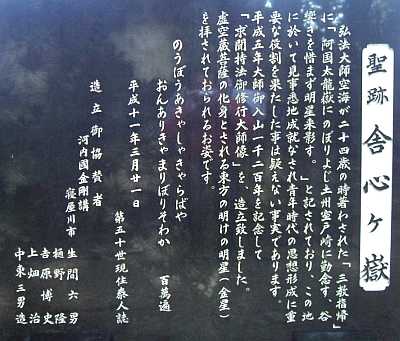 聖跡 舎心ヶ嶽
弘法大師空海が二十四歳の時著わされた「三教指帰」
に「阿国太龍嶽にのぼりよじ土州室戸崎に勤念す、谷
響きを惜まず明星来影す。」と記されており、この地
に於いて見事悉地成就なされ青年時代の思想形成に重
要な役割を果たした事は疑えない事実であります。
平成五年大師御入山一千二百年を記念して
「求聞持法御修行大師像」を、造立致しました。
虚空蔵菩薩の化身とされる東方の明けの明星(金星)
を拝されておられるお姿です。
のうぼうあきゃしゃきゃらばや
おんありきゃまりぼりそわか 百萬遍
平成十一年三月廿一日
第五十世現住泰人誌
造立御協賛者
河内國金剛講
寝屋川市
生間六男
樋野隆
吉原博史
上畑治
中東三男造